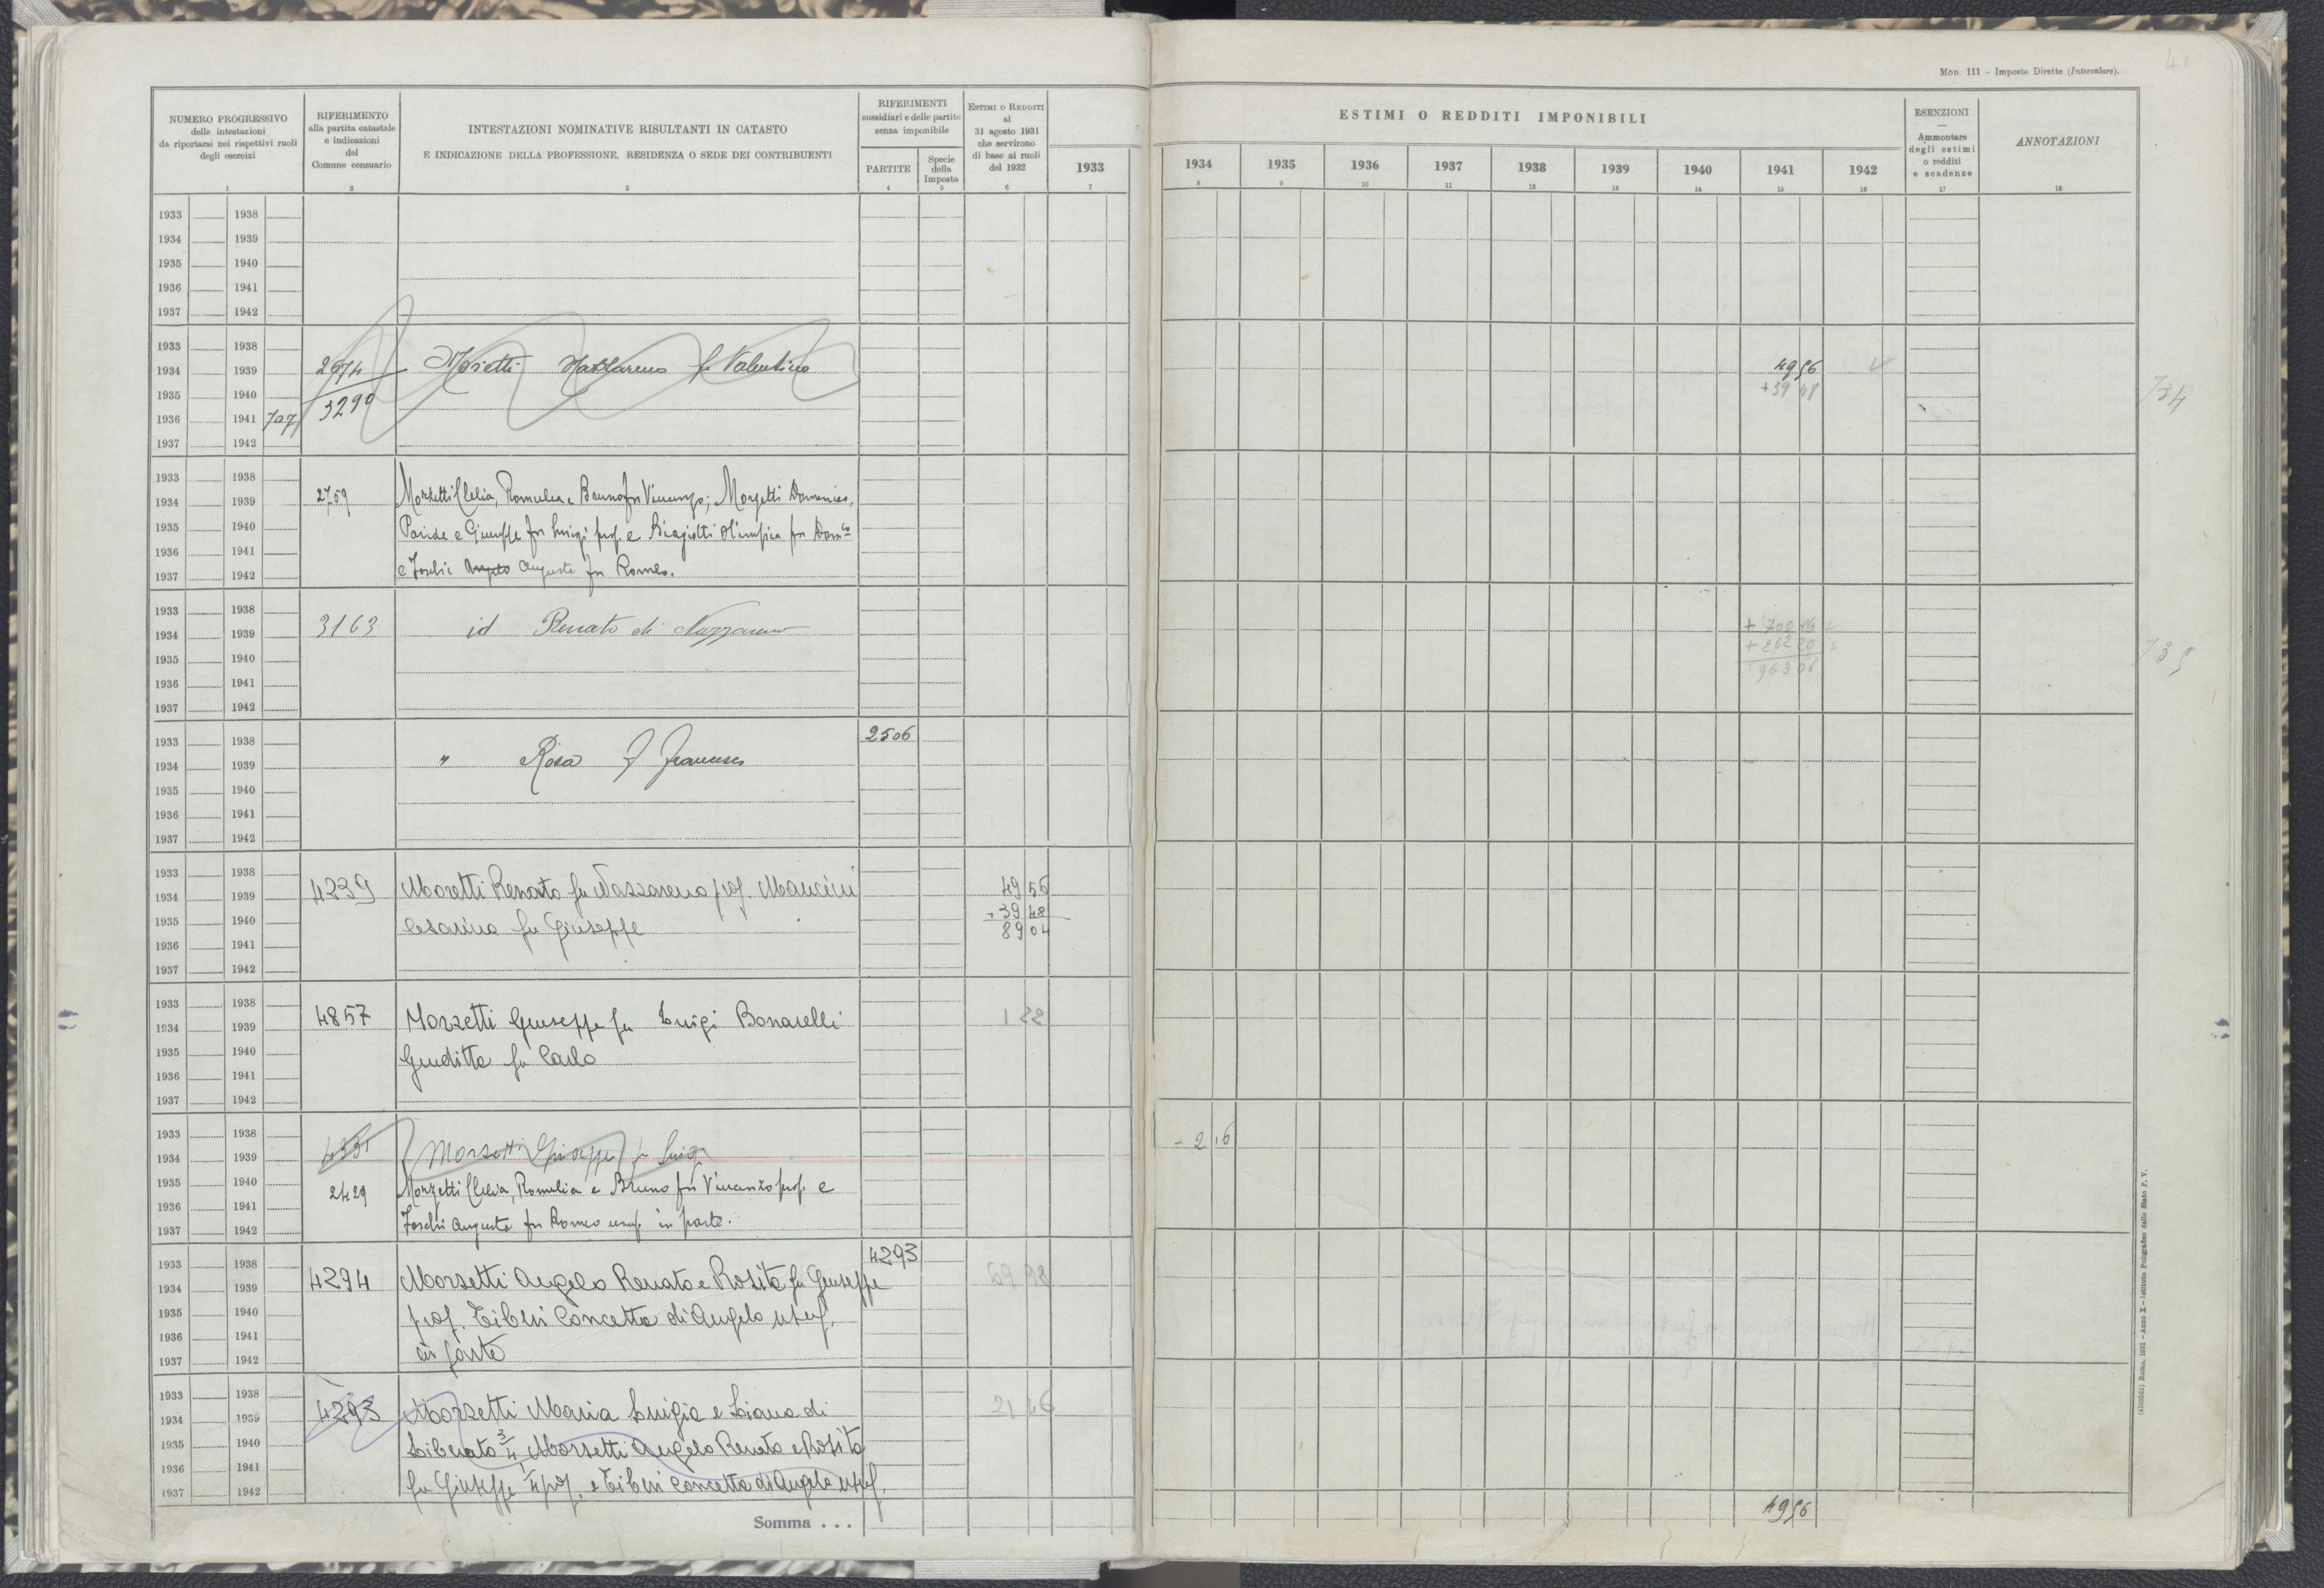 Mod. 111 - Imposte Dirette (Intercalare).
41
NUMERO PROGRESSIVO
delle intestazioni
da riportarsi nei rispettivi ruoli
degli esercizi
RIFERIMENTO
alla partita catastale
e indicazioni
del
Comune censuario
INTESTAZIONI NOMINATIVE RISULTANTI IN CATASTO
E INDICAZIONE DELLA PROFESSIONE, RESIDENZA O SEDE DEI CONTRIBUENTI
RIFERIMENTI
sussidiari e delle partite
senza imponibile
PARTITE
Specie
della
Imposta
ESTIMI O REDDITI
al
31 agosto 1931
che servirono
di base ai ruoli
del 1932
ESTIMI O REDDITI IMPONIBILI
1933 1934 1935 1936 1937 1938 1939 1940 1941 1942
ESENZIONI
—
Ammontare
degli estimi
o redditi
e scadenze
ANNOTAZIONI
1 2 3 4 5 6 7 8 9 10 11 12 13 14 15 16 17 18
1933 1938
1934 1939
1935 1940
1936 1941
1937 1942
1933 1938
1934 1939 2674 Moretti Nazzareno fu Valentino 49 56
1935 1940 3290 +39 48
1936 1941
1937 1942
734
1933 1938
1934 1939 2759 Morzetti Clelia, Romulea e Bruno fu Vincenzo; Morzetti Domenico,
1935 1940 Paride e Giuseppe fu Luigi prop. e Biagiotti Olimpia fu Dom.co
1936 1941
1937 1942 e Foschi Angelo Augusta fu Romeo.
1933 1938
1934 1939 3163 id Renato di Nazzareno + 700
1935 1940 + 262 20
1936 1941 963 06
1937 1942
735
1933 1938 2506
1934 1939 " Rosa f Francesco
1935 1940
1936 1941
1937 1942
1933 1938
1934 1939 4239 Moretti Renato fu Nazzareno prop. Mancini 49 56
1935 1940 Cesarina fu Giuseppe + 39 48
1936 1941 89 04
1937 1942
1933 1938
1934 1939 4857 Morzetti Giuseppe fu Luigi Bonarelli 1 22
1935 1940
1936 1941 Giuditta fu Carlo
1937 1942
1933 1938
1934 1939 4331 Morsetti Giuseppe fu Luigi - 2 16
1935 1940 2429 Morzetti Clelia, Romulia e Bruno fu Vincenzo prop. e
1936 1941
1937 1942 Foschi Augusta fu Romeo usuf. in parte.
1933 1938 4293
1934 1939 4294 Morsetti Angelo Renato e Rosita fu Giuseppe 69 98
1935 1940 prop. Tiberi Concetta di Angelo usuf.
1936 1941
1937 1942 in parte
1933 1938
1934 1939 4293 Morzetti Maria Luigia e Liana di 21 46
1935 1940 Liberato 3/4, Morsetti Angelo Renato e Rosita
1936 1941
1937 1942 fu Giuseppe 1/4 prop. e Tiberi Concetta di Angelo usuf.
Somma . . . 49 56
Roma, 1931 - Anno X - Istituto Poligrafico dello Stato P. V.